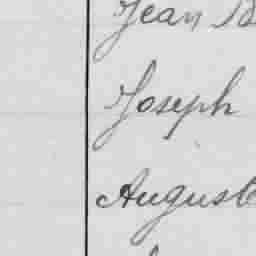 Jean B
Joseph
August